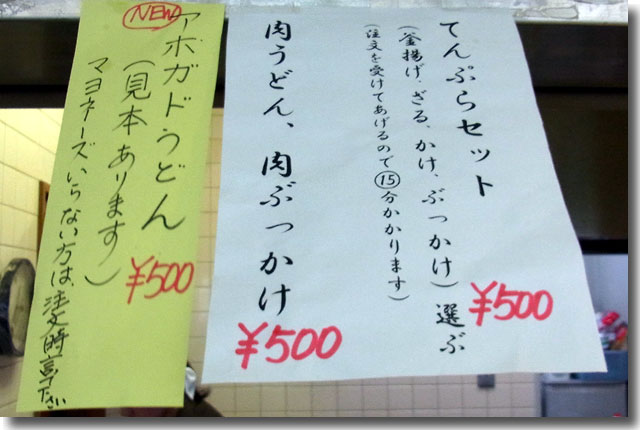 てんぷらセット
(釜揚げ、ざる、かけ、ぶっかけ)選ぶ
(注文を受けてあげるので⑮分かかります)
¥500
肉うどん、肉ぶっかけ
¥500
NEW
アボガドうどん
(見本あります)
¥500
マヨネーズいらない方は、注文時言て下さい